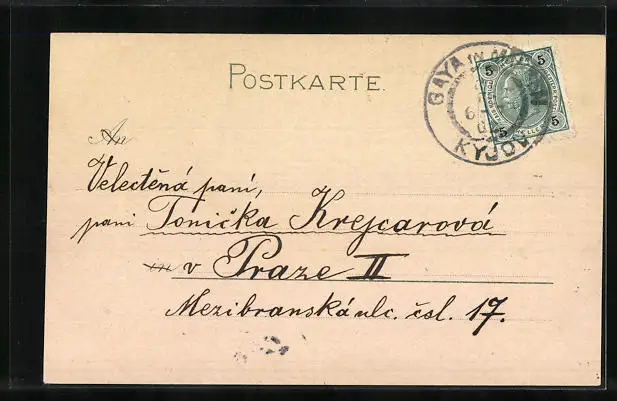 POSTKARTE.
GAYA IN MÄHREN
KYJOV
5 5
5 5
An
Velectěná paní,
paní Tonička Krejcarová
in v Praze II
Mezibranská ulc. čsl. 17.